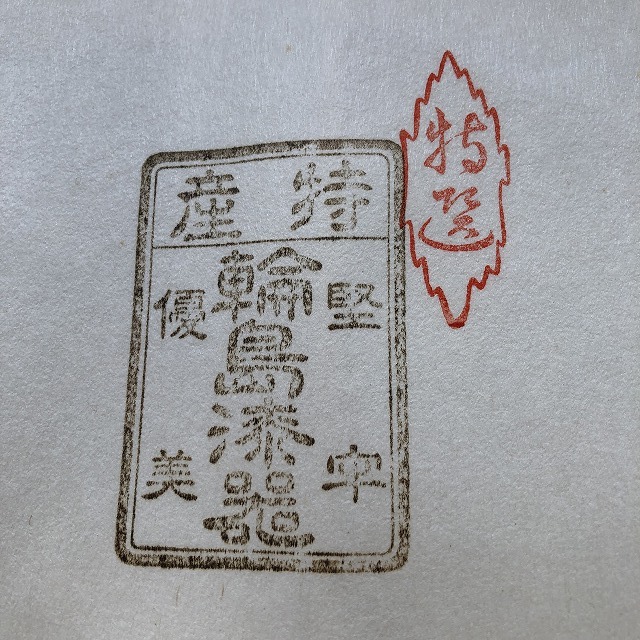 特産
堅牢
輪島漆器
優美
特選